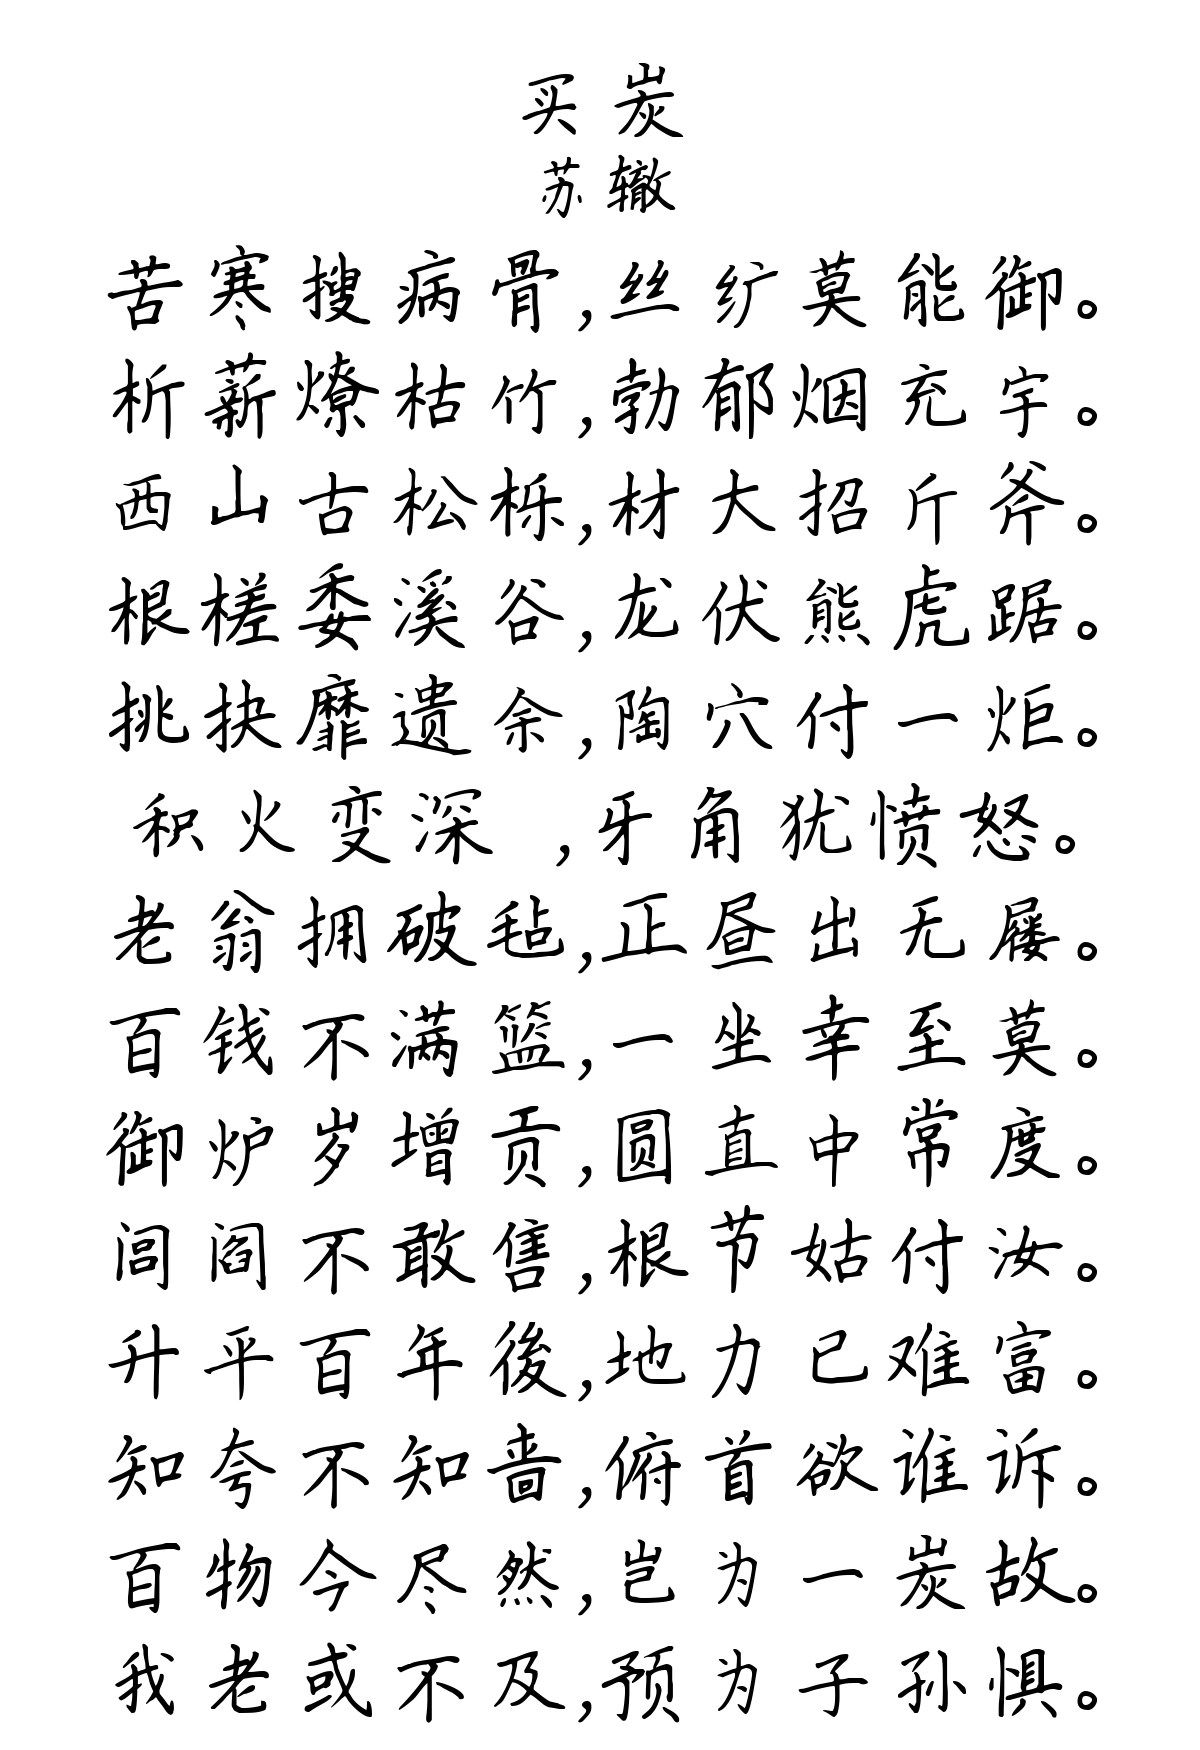 买炭
苏辙
苦寒搜病骨,丝纩莫能御。
析薪燎枯竹,勃郁烟充宇。
西山古松栎,材大招斤斧。
根槎委溪谷,龙伏熊虎踞。
挑抉靡遗余,陶穴付一炬。
积火变深 ,牙角犹愤怒。
老翁拥破毡,正昼出无屦。
百钱不满篮,一坐幸至莫。
御炉岁增贡,圆直中常度。
闾阎不敢售,根节姑付汝。
升平百年後,地力已难富。
知夸不知啬,俯首欲谁诉。
百物今尽然,岂为一炭故。
我老或不及,预为子孙惧。